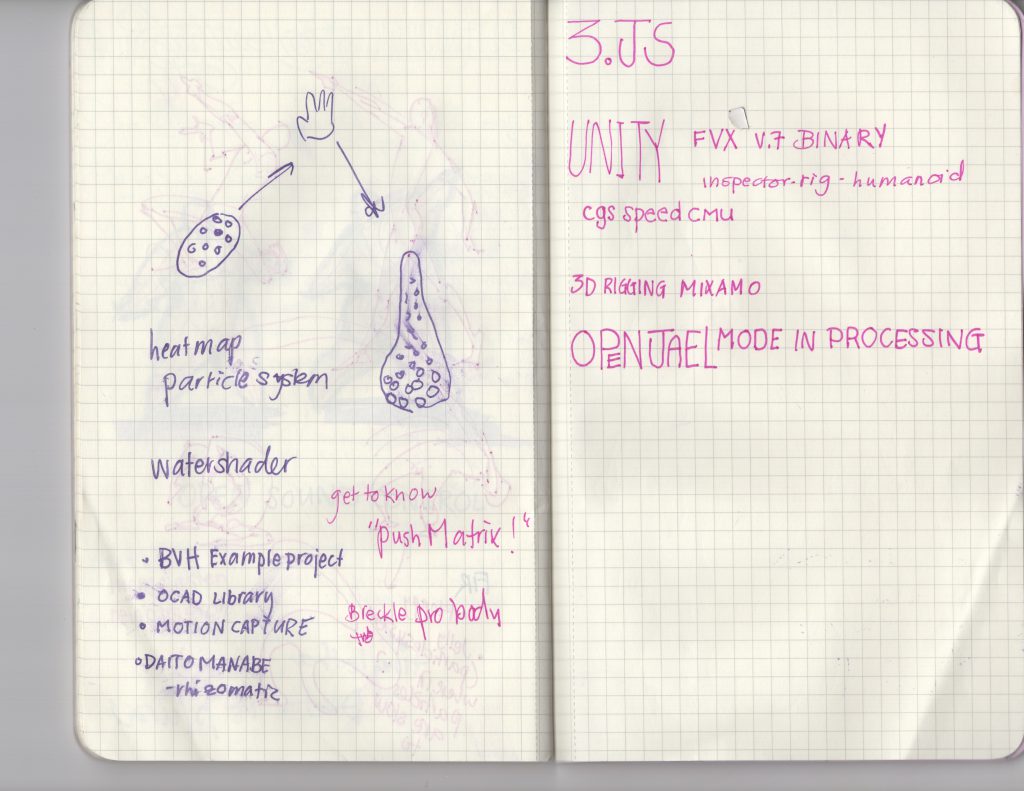 heatmap
particle system
watershader
get to know
"push Matrix!"
• BVH Example project
• OCAD Library
• MOTION CAPTURE
• DAITO MANABE
-rhizomatiz
Breckle pro body
3.JS
UNITY FVX V.7 BINARY
inspector-rig-humanoid
cgs speed CMU
3D RIGGING MIXAMO
OPENJAEL MODE IN PROCESSING